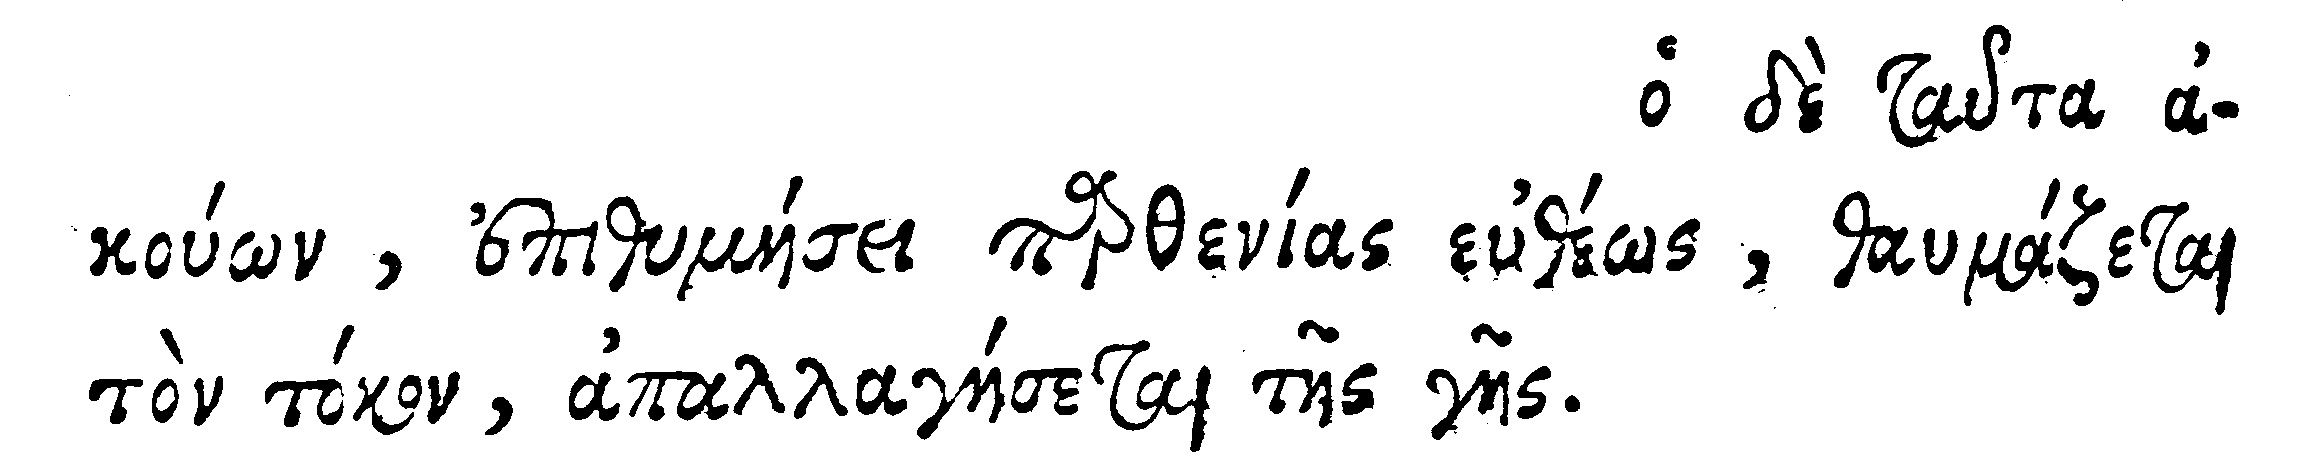 ὁ δὲ ταῦτα ἀ-
κούων, ἐπιθυμήσει παρθενίας εὐθέως, θαυμάζεται
τὸν τόκον, ἀπαλλαγήσεται τῆς γῆς.